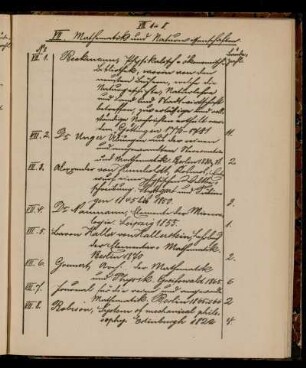 VII 1-8
VII Mathematik und Naturwissenschaften
No
VII. 1. Beckmann, Physikalisch-ökonomische
Bibliothek, worin von den
neuesten Büchern, welche die
Naturgeschichte, Naturlehre
und Land und Stadtwirthschaft
betreffen, zuverlässige und voll-
ständige Nachrichten ertheilt wer-
den, Göttingen 11
VII. 2. Dr. Unger, der reinen
und angewandten
Mathematik. Berlin 2
VII. 3. Alexander von Humboldt, Kosmos, Ent-
wurf einer physischen Weltbe-
schreibung. Stuttgart und Tübin-
gen 1845 bis 1850.
VII. 4. Dr. Naumann, Elemente der Minera-
logie. Leipzig 1855. 1
VII. 5. Baron Haller von Hallerstein, Lehrbuch
der Elementar Mathematik.
Berlin 1840 2
VII. 6. Grunert, der Mathematik
und Physik. Greifswald 6
VII. 7. Journal für die reine und angewandte
Mathematik. Berlin 2
VII. 8. Robison, System of mechanical philo-
sophy. Edinburgh 1822 4